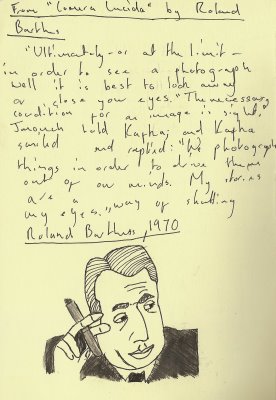 From "Camera Lucida" by Roland
Barthes
"Ultimately - or at the limit -
in order to see a photograph
well it is best to look away
or close you eyes." The necessary
condition for an image is sight,"
Janouch told Kafka; and Kafka
smiled and replied: "We photograph
things in order to drive them
out of our minds. My stories
are a way of shutting
my eyes."
Roland Barthes, 1970